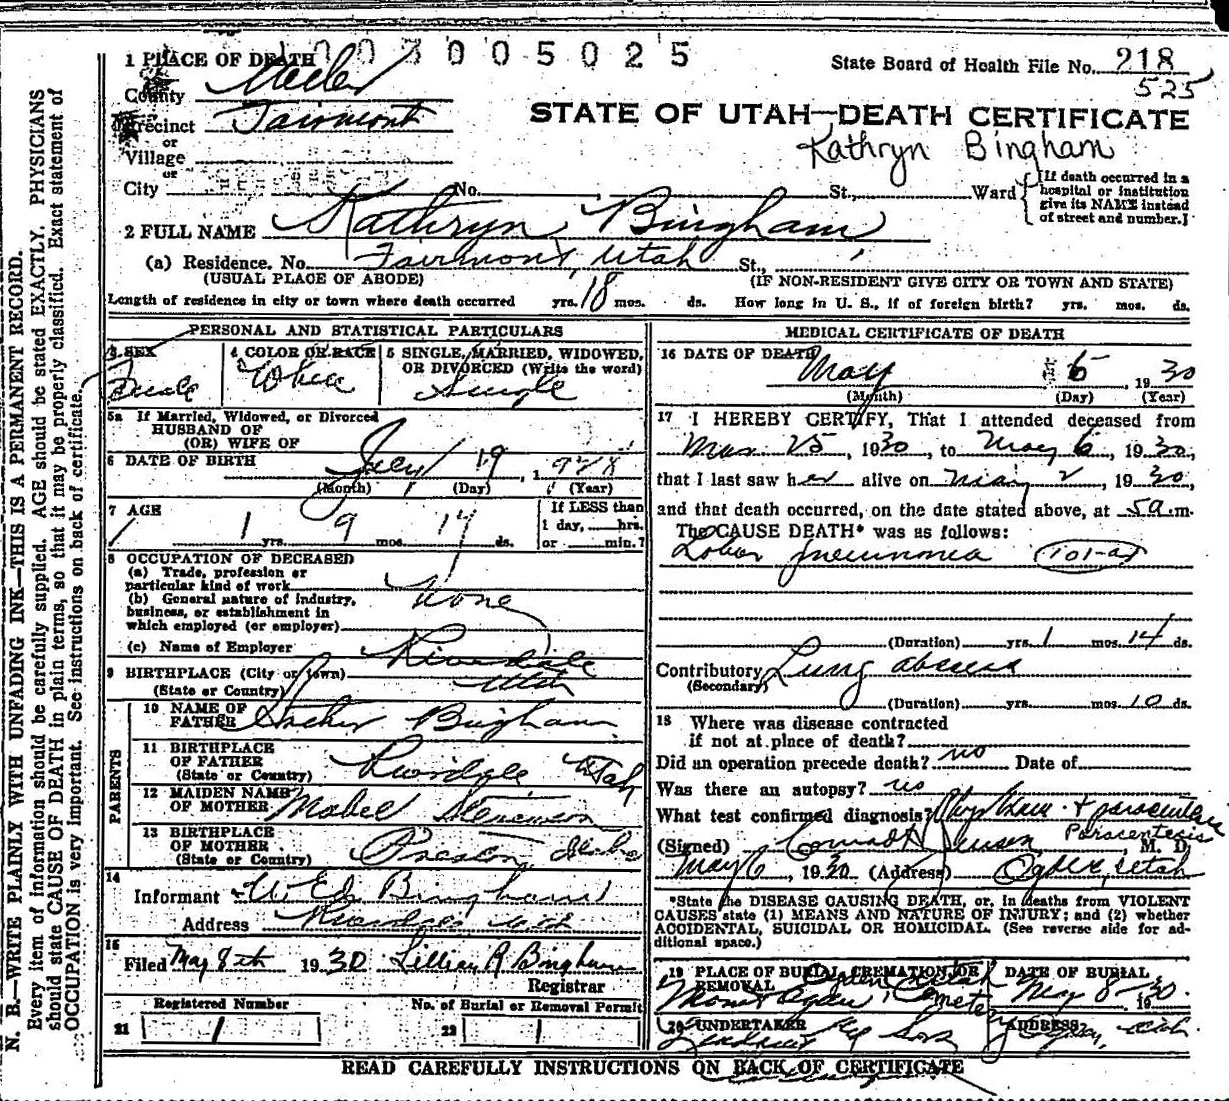 1 PLACE OF DEATH 1003005025
State Board of Health File No. 218
525
County Weber
STATE OF UTAH—DEATH CERTIFICATE
Precinct Fairmont
Kathryn Bingham
or
Village
or
City No. St., Ward
[If death occurred in a hospital or institution give its NAME instead of street and number.]
2 FULL NAME Kathryn Bingham
(a) Residence. No. Fairmont, Utah St.,
(USUAL PLACE OF ABODE) (IF NON-RESIDENT GIVE CITY OR TOWN AND STATE)
Length of residence in city or town where death occurred yrs. 18 mos. ds. How long in U. S., if of foreign birth? yrs. mos. ds.
PERSONAL AND STATISTICAL PARTICULARS
3 SEX 4 COLOR OR RACE 5 SINGLE, MARRIED, WIDOWED,
OR DIVORCED (Write the word)
Female White Single
5a If Married, Widowed, or Divorced
HUSBAND OF
(OR) WIFE OF
6 DATE OF BIRTH July 19, 1928
(Month) (Day) (Year)
7 AGE If LESS than
1 yrs. 9 mos. 17 ds. 1 day, hrs.
or min.?
8 OCCUPATION OF DECEASED
(a) Trade, profession or
particular kind of work
None
(b) General nature of industry,
business, or establishment in
which employed (or employer)
(c) Name of Employer
9 BIRTHPLACE (City or Town) Riverdale
(State or Country) Utah
PARENTS
10 NAME OF
FATHER Bingham
11 BIRTHPLACE
OF FATHER Riverdale Utah
(State or Country)
12 MAIDEN NAME
OF MOTHER Mabel Stevenson
13 BIRTHPLACE
OF MOTHER Preston Idaho
(State or Country)
14
Informant Bingham
Address Riverdale Utah
15
Filed May 8th 1930 Lillian R Bingham
Registrar
Registered Number No. of Burial or Removal Permit
21 22
MEDICAL CERTIFICATE OF DEATH
16 DATE OF DEATH May 6, 1930
(Month) (Day) (Year)
17 I HEREBY CERTIFY, That I attended deceased from
Mar 25, 1930, to May 6, 1930,
that I last saw her alive on May 2, 1930,
and that death occurred, on the date stated above, at 5a.m.
The CAUSE DEATH* was as follows:
Lobar pneumonia 101-a
(Duration) yrs. 1 mos. 14 ds.
Contributory Lung abscess
(Secondary)
(Duration) yrs. mos. 10 ds.
18 Where was disease contracted
if not at place of death?
Did an operation precede death? no Date of
Was there an autopsy? no
What test confirmed diagnosis? + paracentesis
Paracentesis
(Signed) Conrad H Jensen, M. D.
May 6, 1930 (Address) Ogden, Utah
*State the DISEASE CAUSING DEATH, or, in deaths from VIOLENT
CAUSES state (1) MEANS AND NATURE OF INJURY; and (2) whether
ACCIDENTAL, SUICIDAL OR HOMICIDAL. (See reverse side for ad-
ditional space.)
19 PLACE OF BURIAL, CREMATION, OR DATE OF BURIAL
REMOVAL Ogden Utah
Mount Ogden Cemetery May 8 1930.
20 UNDERTAKER ADDRESS
& Sons Ogden, Utah
READ CAREFULLY INSTRUCTIONS ON BACK OF CERTIFICATE
N. B.—WRITE PLAINLY WITH UNFADING INK—THIS IS A PERMANENT RECORD.
Every item of information should be carefully supplied. AGE should be stated EXACTLY. PHYSICIANS
should state CAUSE OF DEATH in plain terms, so that it may be properly classified. Exact statement of
OCCUPATION is very important. See instructions on back of certificate.